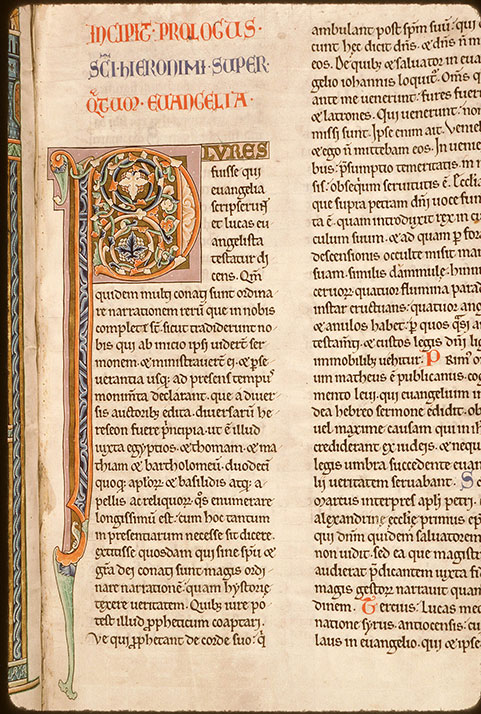 INCIPIT · PROLOGUS ·
SCI · HIERONIMI · SUPER ·
QTUOR · EUANGELIA ·
PLURES
fuisse qui
euangelia
scripserunt
et lucas eu
angelista
testatur di
cens. Qm̅
quidem multi conati sunt ordina
re narrationem rerū que in nobis
complete st̅. sicut tradiderunt no
bis qui ab inicio ipsi uider̅t ser
monem. & ministrauert̅ ei. & pse
uerantia usq; ad presens tempus
monim̅ta declarant. que a diuer
sis auctorib; edita. diuersarū he
reseon fuere p̅ncipia. ut ē illud
iuxta egyptios. & thomam. & ma
thiam & bartholomeū. duodeci̅
quoq; aplor̅. & basilidis atq; a
pellis. ac reliquor̅. q̅s enumerare
longissimū est: cum hoc tantum
in presentiarum necesse sit dicere.
extitisse quosdam qui sine spu̅ &
gr̅a dei conati sunt magis ordi
nare narrationē: quam hystorie
texere ueritatem. Quib; iure po
test illud propheticum coaptari.
Ve qui prophetant de corde suo: q̅
ambulant post spm̅ suū. qui d
cunt hec dicit dn̅s. & dn̅s n̅ m
eos. De quib; & saluator in eua
gelio iohannis loquit̅. Om̅s q
ante me uenerunt. fures fuer
& latrones. Qui uenerunt: non
missi sunt. Ipse enim ait. Venieb
& ego n̅ mittebam eos. In uenie
bus: p̅sumptio temeritatis. in m
sis: obsequium seruitutis ē. Eccl̅ia
que supra petram dn̅i uoce fun
ta ē. quam introduxit rex in cu
culum suum. & ad quam p for
descensionis occulte misit man
suam. similis dammule. hinnu
ceruor̅. quatuor flumina parad
instar eructans. quatuor ang
& anulos habet. p quos q̅si ar
testam̅ti. & custos legis dn̅i lig
immobilib; uehitur. Prim; om
um matheus ē publicanus. cog
mento leui. qui euangelium in
dea hebreo sermone edidit. ob
uel maxime causam qui in ih
crediderant ex iudeis. & neq
legis umbra succedente euan
lii ueritatem seruabant. Sc
marcus interpres apl̅i petri.
alexandrine eccl̅ie primus ep
qui dn̅m quidem saluatorem
non uidit. sed ea que magistr
audierat p̅dicantem. iuxta fid
magis gestor̅ narrauit quam
dinem. Tercius: Lucas med
natione syrus. antiocensis. cu
laus in euangelio. qui & ipse